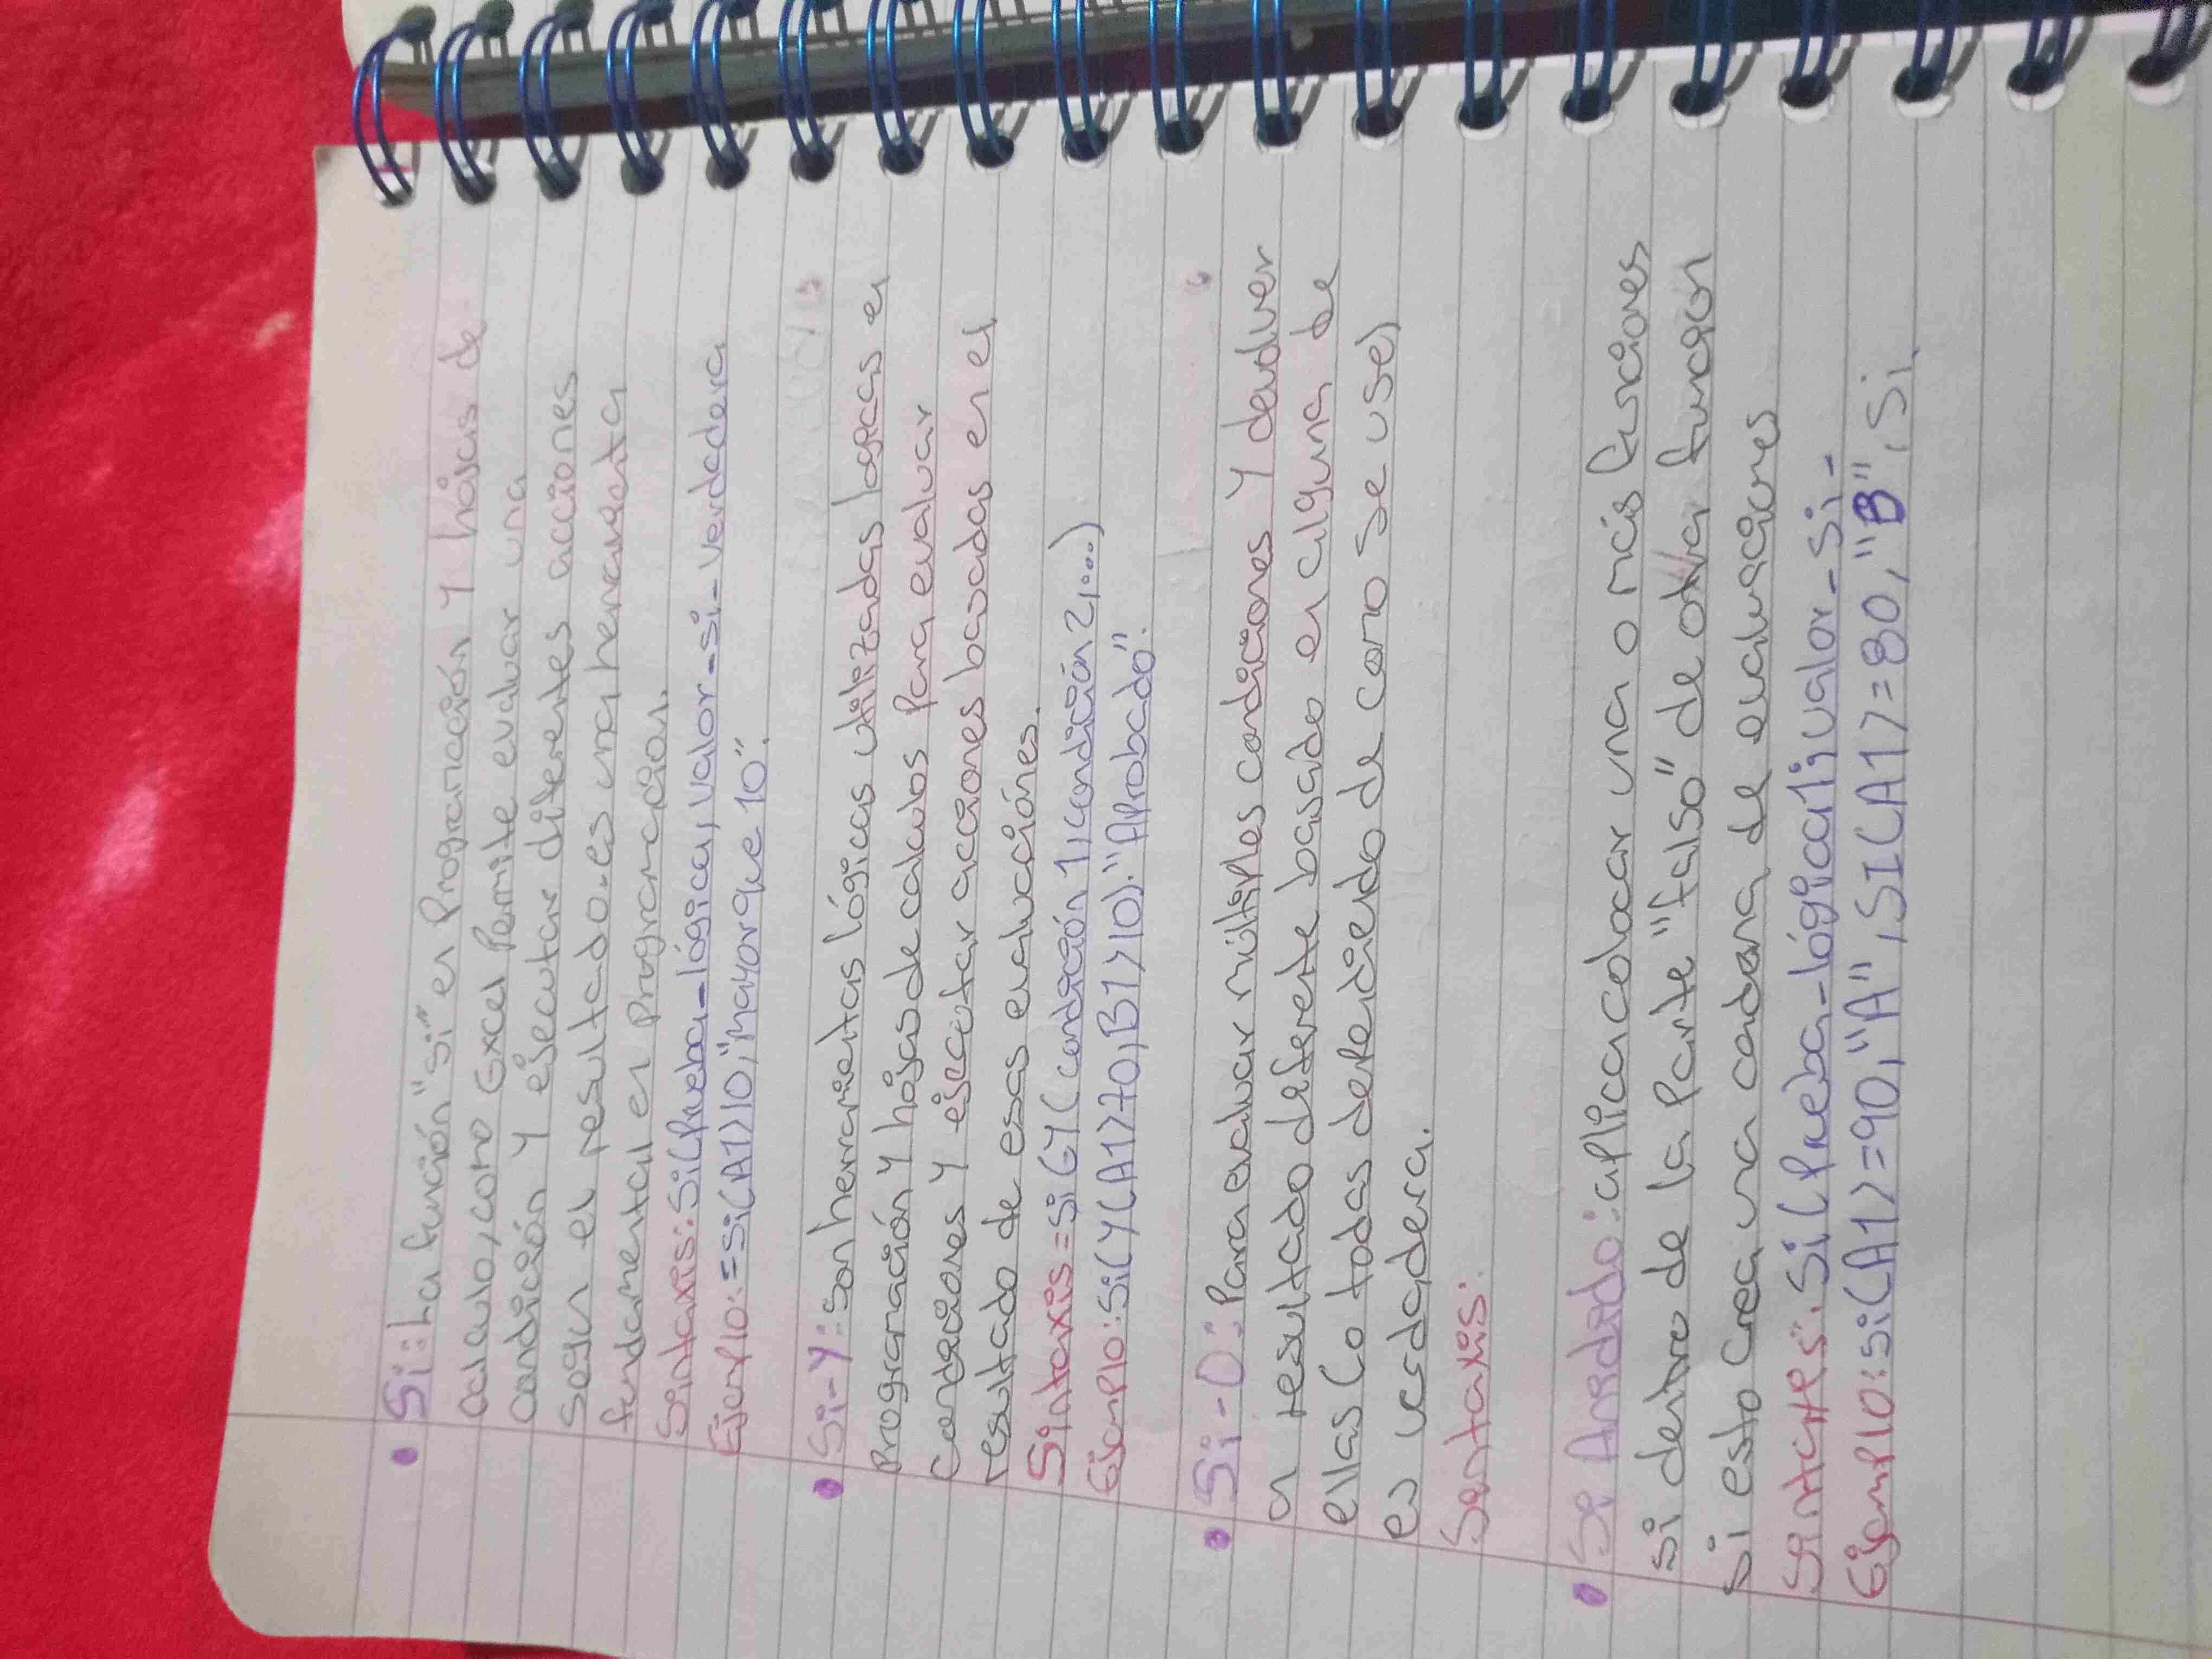 • Si: La función "si" en Programación y hojas de
calculo, como Excel Permite evaluar una
condición y ejecutar diferentes acciones
segun el resultado. es una herramienta
fundamental en Programación.
Sintaxis: Si(Prueba_lógica, valor_si_verdadera
Ejemplo: =Si(A1>10,"Mayor que 10".
• Si-Y: son herramientas lógicas utilizadas logicas en
Programación y hojas de calculos Para evaluar
Condiciones y ejecutar acciones basadas en el
resultado de esas evaluaciónes.
Sintaxis=Si(Y(condición1,condición2,...)
Ejemplo: Si(Y(A1>70,B1>10)."Aprobado".
• Si-O: Para evaluar múltiples condiciones y devolver
a resultado deferente basado en alguna de
ellas (o todas dependiendo de como se use)
es verdadera.
Sentaxis:
• Si Anidado: aplica colocar una o más funciones
si dentro de la Parte "falso" de otra funcion
si esto crea una cadena de evaluaciones
Sintaxis: Si(Prueba_lógica1; valor_si_
Ejemplo: si(A1>=90,"A",SI(A1>=80,"B",Si,